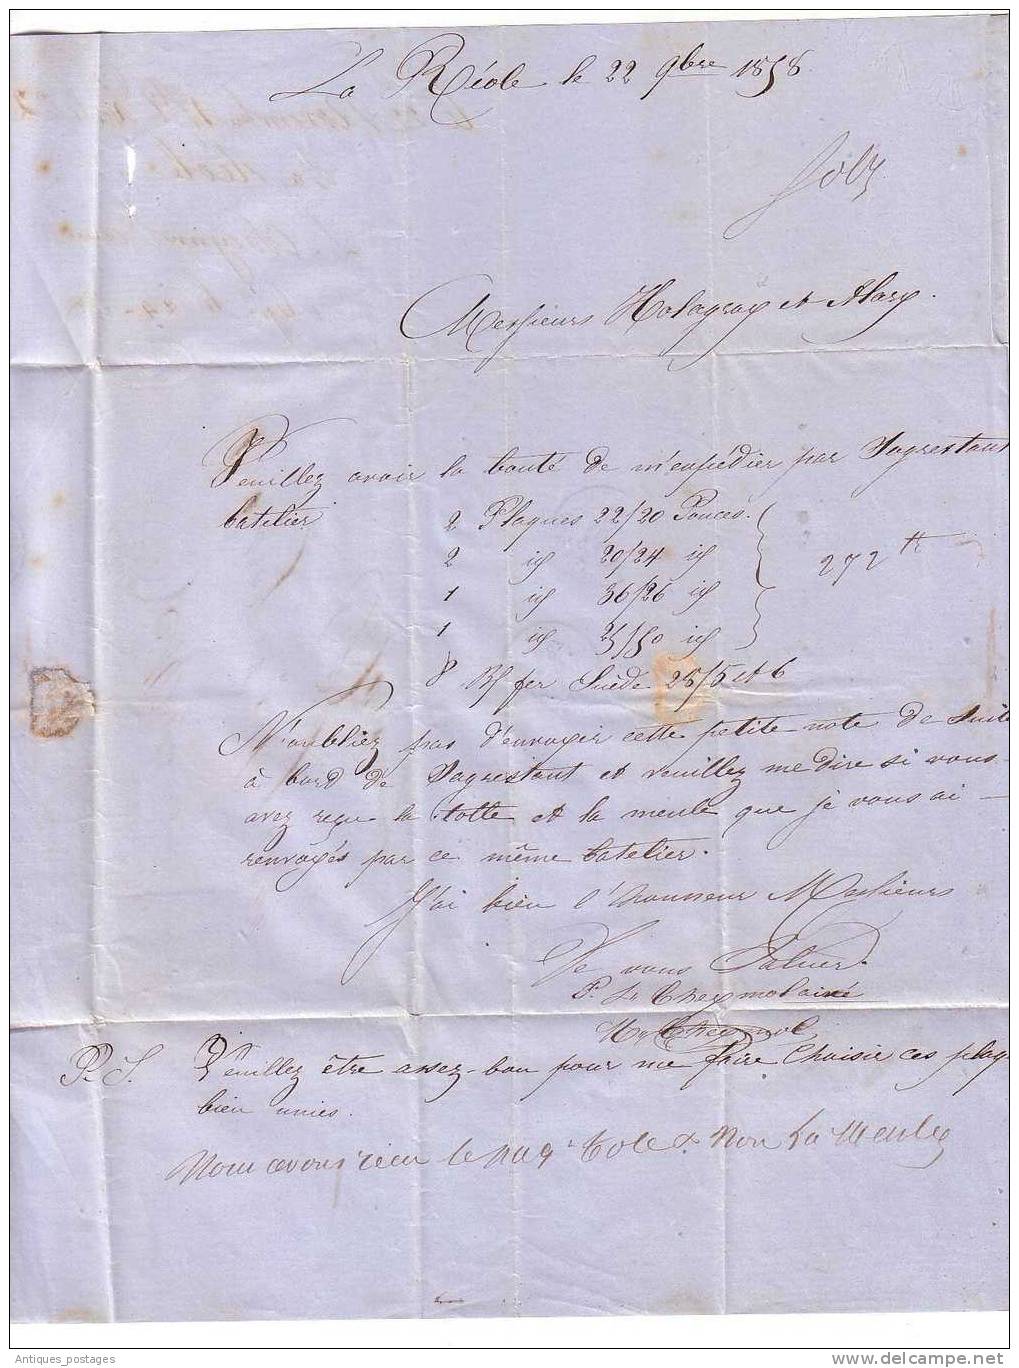 La Réole le 22 9bre 1858
Messieurs Holagray et Alary.
Veuillez avoir la bonté de m'expédier par Sagrestant
batelier 2 Plaques 22/20 Pouces.
2 id 20/24 id 272 ℔
1 id 36/26 id
1 id 25/50 id
8 Bf fer Suède 25/5 et 6
N'oubliez pas d'envoyer cette petite note de suite
à bord de Sagrestant et veuillez me dire si vous
avez reçu la tolle et la meule que je vous ai
renvoyés par ce même batelier.
J'ai bien l'honneur Messieurs
De vous Saluer.
P. Cheymol ainé
Cheymol
P. S. Veuillez être assez bon pour me faire choisir ces plaq
bien unies.
Nous avons recu le tole & Non La Meule
Antiques_postages
www.delcampe.net